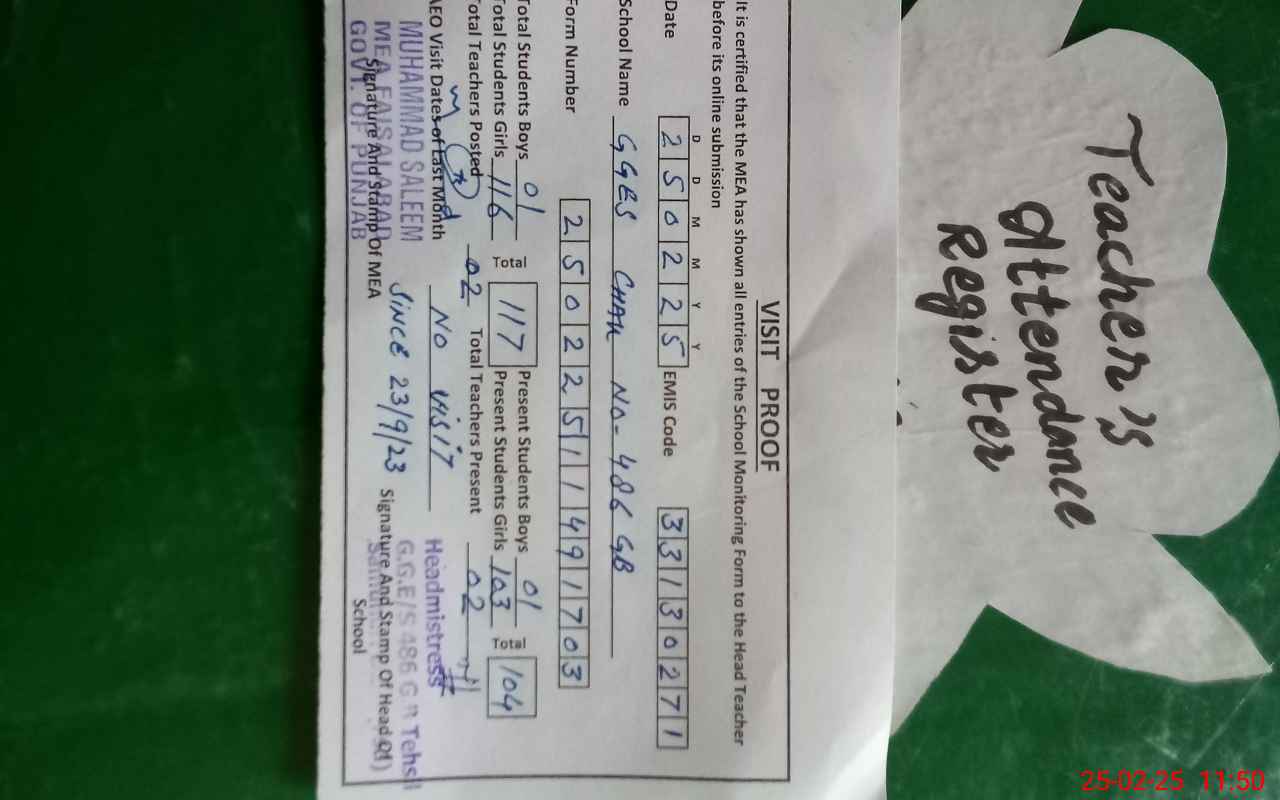 Teacher's
Attendance
Register
VISIT PROOF
It is certified that the MEA has shown all entries of the School Monitoring Form to the Head Teacher
before its online submission
D D M M Y Y
Date 2 5 0 2 2 5 EMIS Code 3 3 1 3 0 2 7 1
School Name GGES CHAK NO- 486 GB
Form Number 2 5 0 2 2 5 1 1 4 9 1 7 0 3
Total Students Boys 01 Total 117 Present Students Boys 01 Total 104
Total Students Girls 116 Present Students Girls 103
Total Teachers Posted 02 Total Teachers Present 02
AEO Visit Dates of Last Month No visit
Since 23/9/23
MUHAMMAD SALEEM
MEA FAISALABAD
GOVT. OF PUNJAB
Signature And Stamp Of MEA
Headmistress
G.G.E/S 486 G B Tehsil
Signature And Stamp Of Head Of
School
25-02-25 11:50